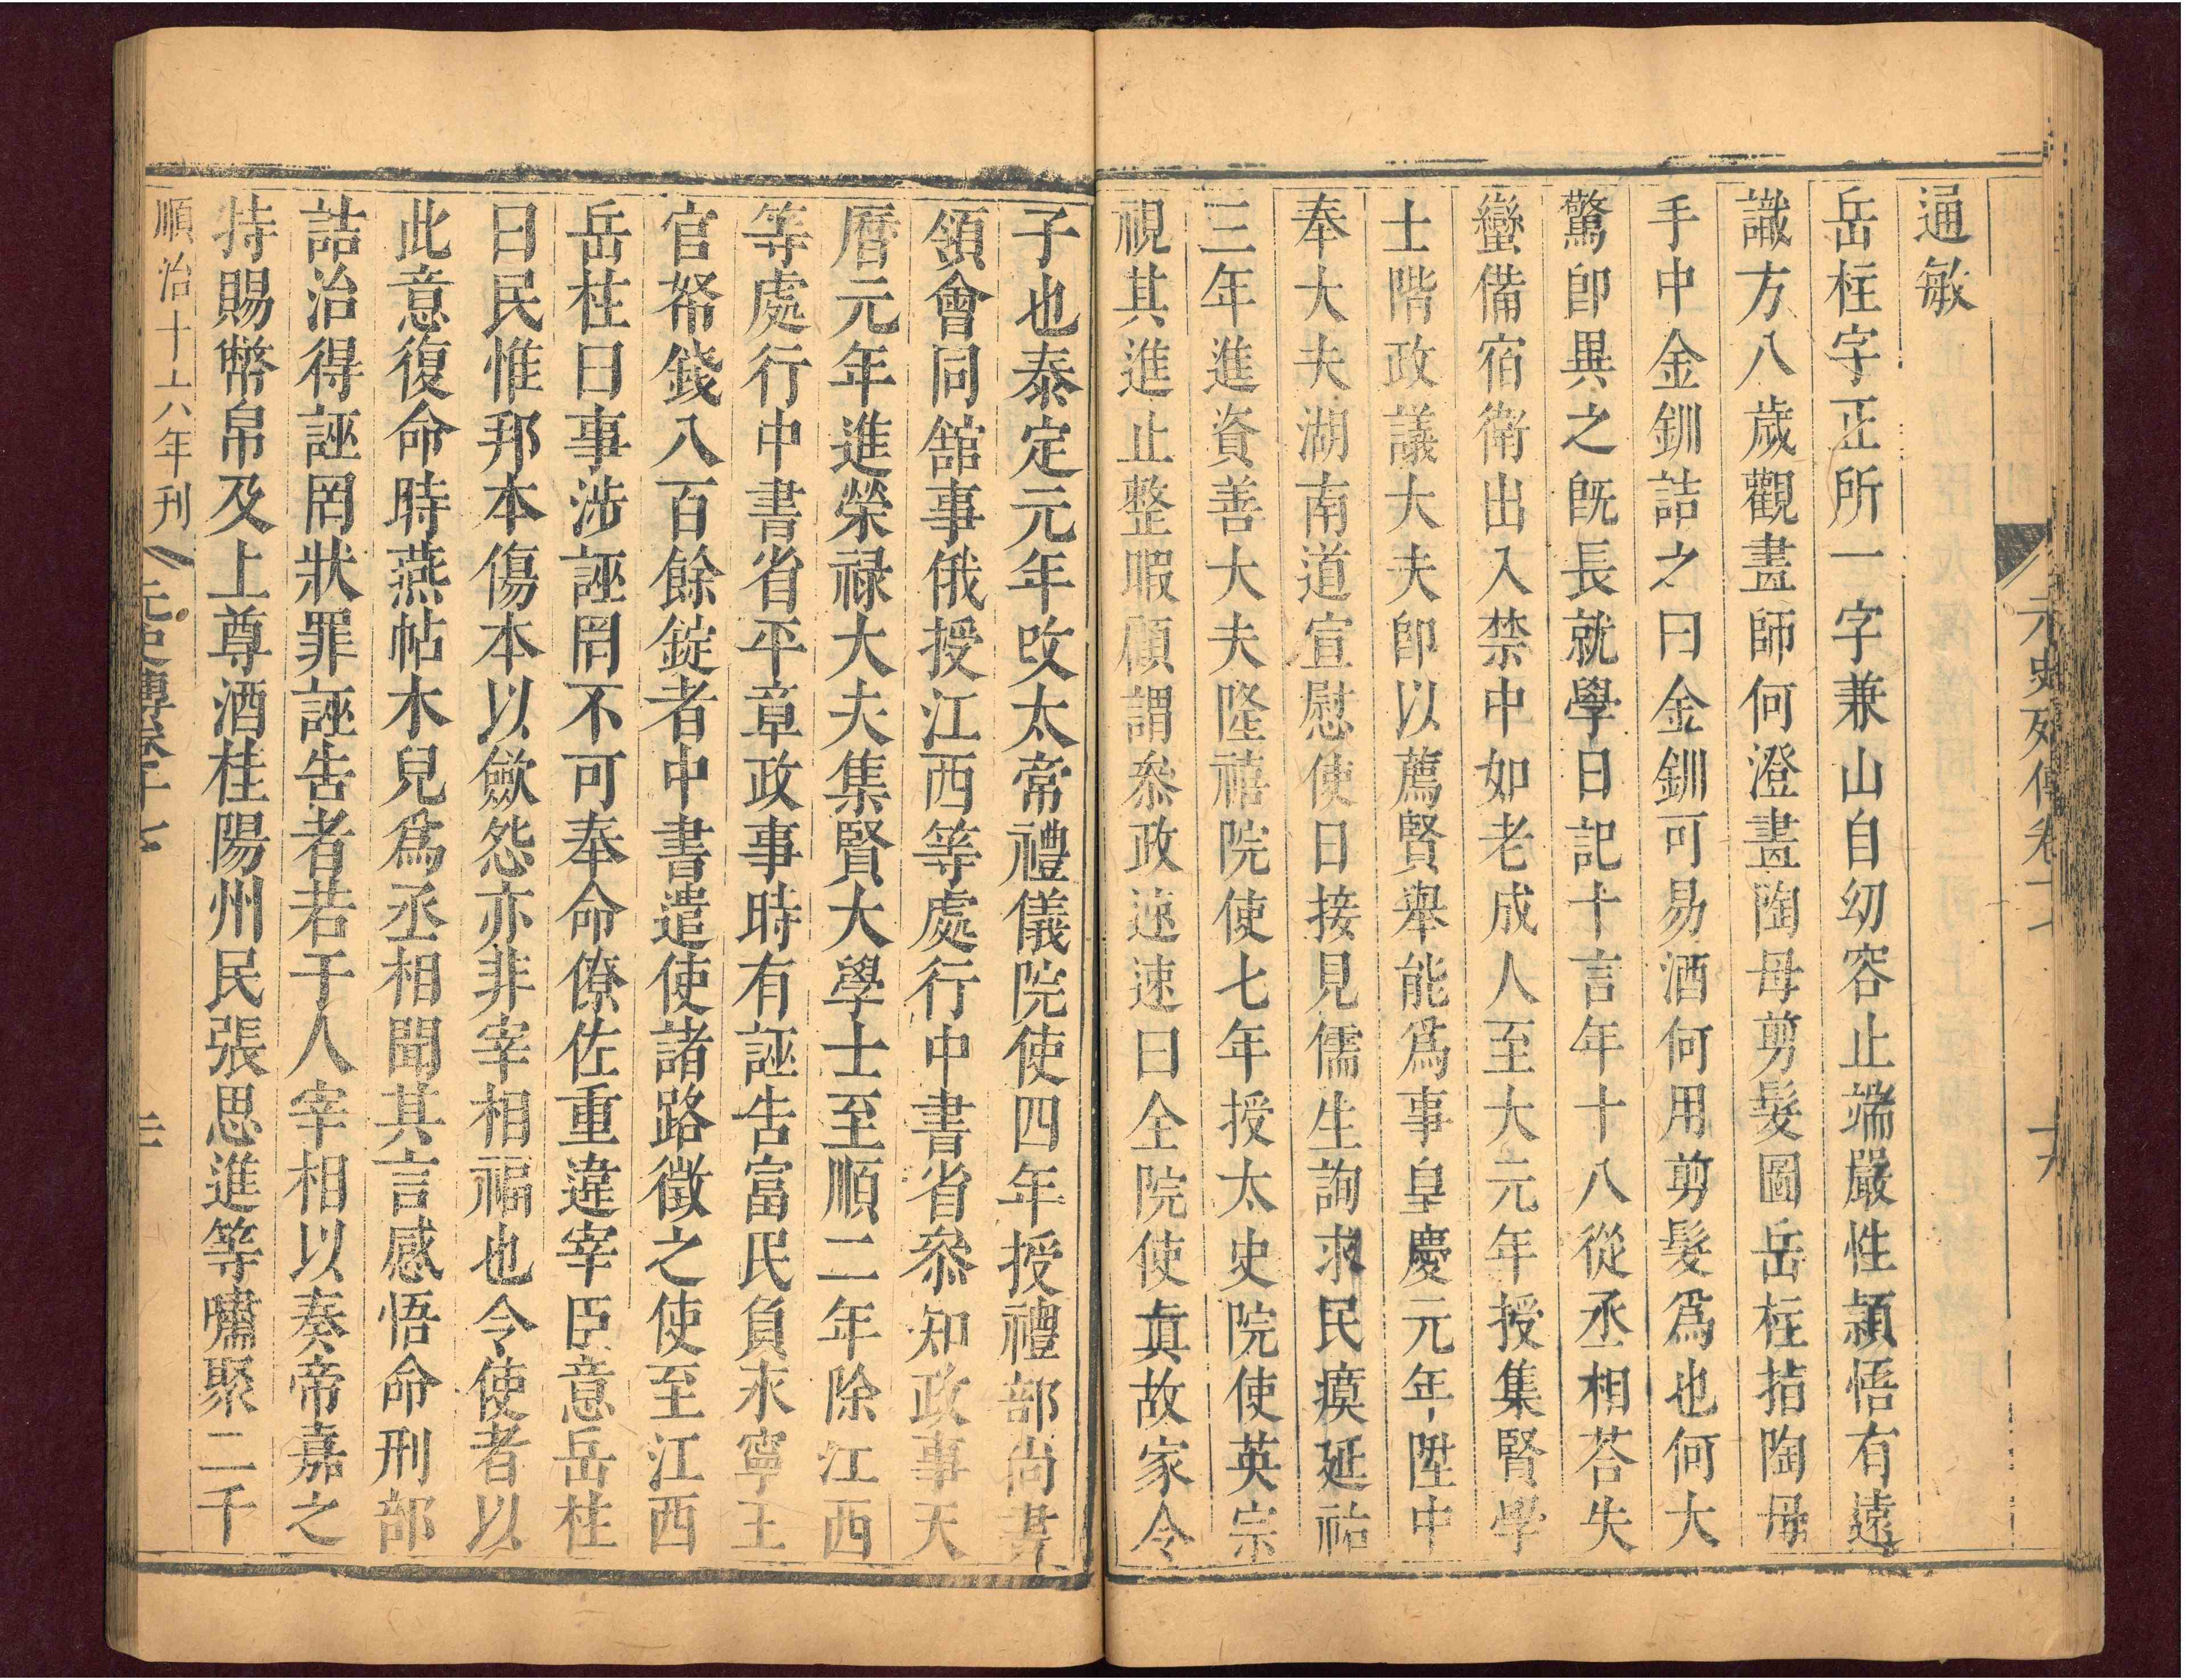 元史列傳卷十七
十九
通敏
岳柱字正所一字兼山自幼容止端嚴性頴悟有遠
識方八歲觀畫師何澄畫陶母剪髮圖岳柱指陶母
手中金釧詰之曰金釧可易酒何用剪髮爲也何大
驚卽異之旣長就學日記十言年十八從丞相荅失
蠻備宿衛出入禁中如老成人至大元年授集賢學
士階政議大夫卽以薦賢舉能爲事皇慶元年陞中
奉大夫湖南道宣慰使日接見儒生詢求民瘼延祐
三年進資善大夫隆禧院使七年授太史院使英宗
視其進止整暇顧謂叅政速速曰全院使眞故家令
子也泰定元年攺太常禮儀院使四年授禮部尚書
領會同舘事俄授江西等處行中書省叅知政事天
曆元年進榮禄大夫集賢大學士至順二年除江西
等處行中書省平章政事時有誣告富民負永寧王
官帑錢八百餘錠者中書遣使諸路徵之使至江西
岳柱曰事涉誣罔不可奉命僚佐重違宰臣意岳柱
曰民惟邦本傷本以斂怨亦非宰相福也令使者以
此意復命時燕帖木兒爲丞相聞其言感悟命刑部
詰治得誣罔狀罪誣告者若干人宰相以奏帝嘉之
特賜幣帛及上尊酒桂陽州民張思進等嘯聚二千
順治十六年刊
元史傳卷十七